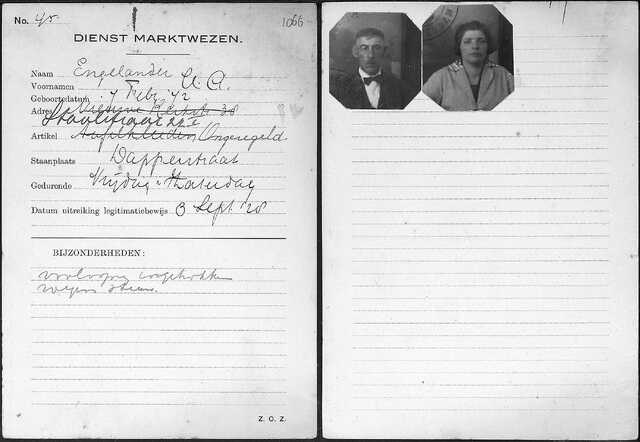 No. 45 1066
DIENST MARKTWEZEN.
Naam Engelander
Voornamen
Geboortedatum 7 Febr. 72
Adres Nieuwe Kerkstr 38
Artikel Ongeregeld
Staanplaats Dapperstraat
Gedurende Vrijdag Zaterdag
Datum uitreiking legitimatiebewijs 3 Sept 28
BIJZONDERHEDEN:
voorloopig ingetrokken
wegens steun.
Z. O. Z.